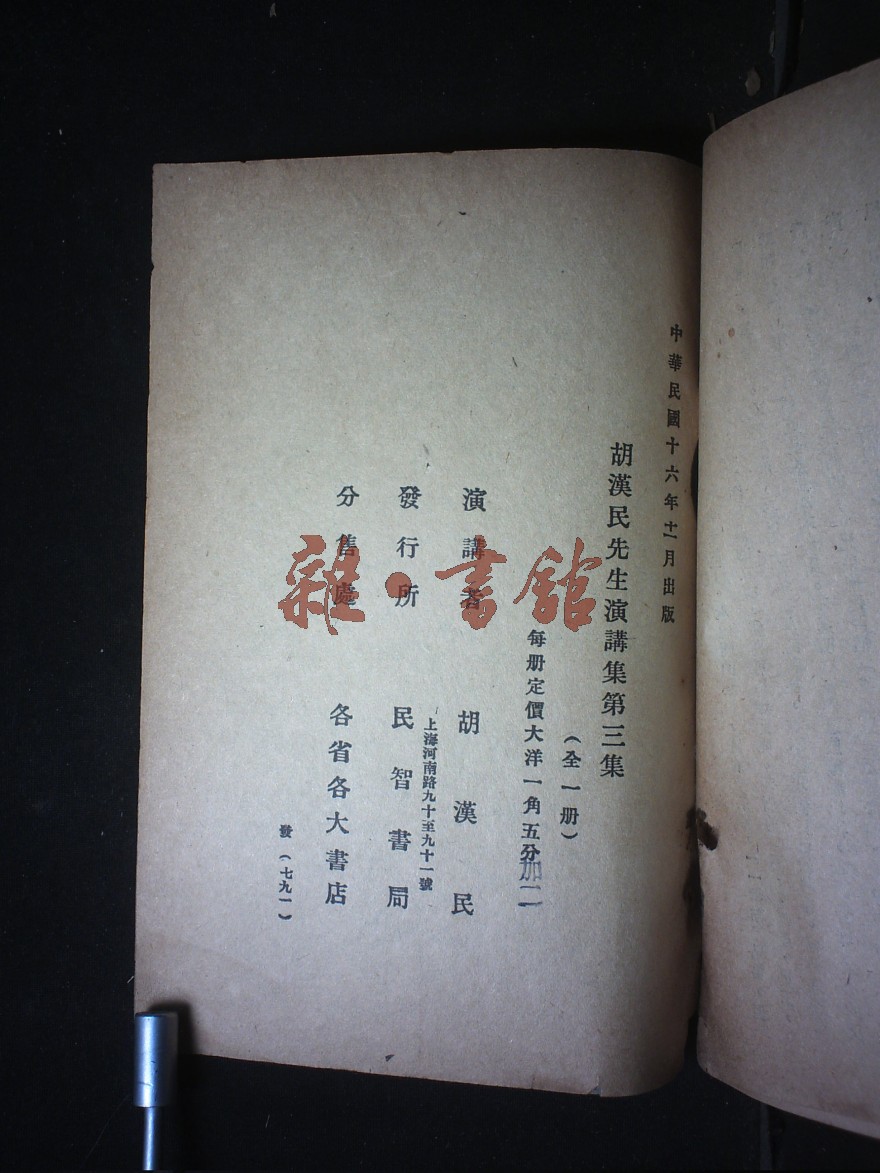 中華民國十六年十一月出版
胡漢民先生演講集第三集
（全一册）
每册定價大洋一角五分加二
演講者 胡漢民
上海河南路九十至九十一號
發行所 民智書局
分售處 各省各大書店
發（七九一）
雜·書館